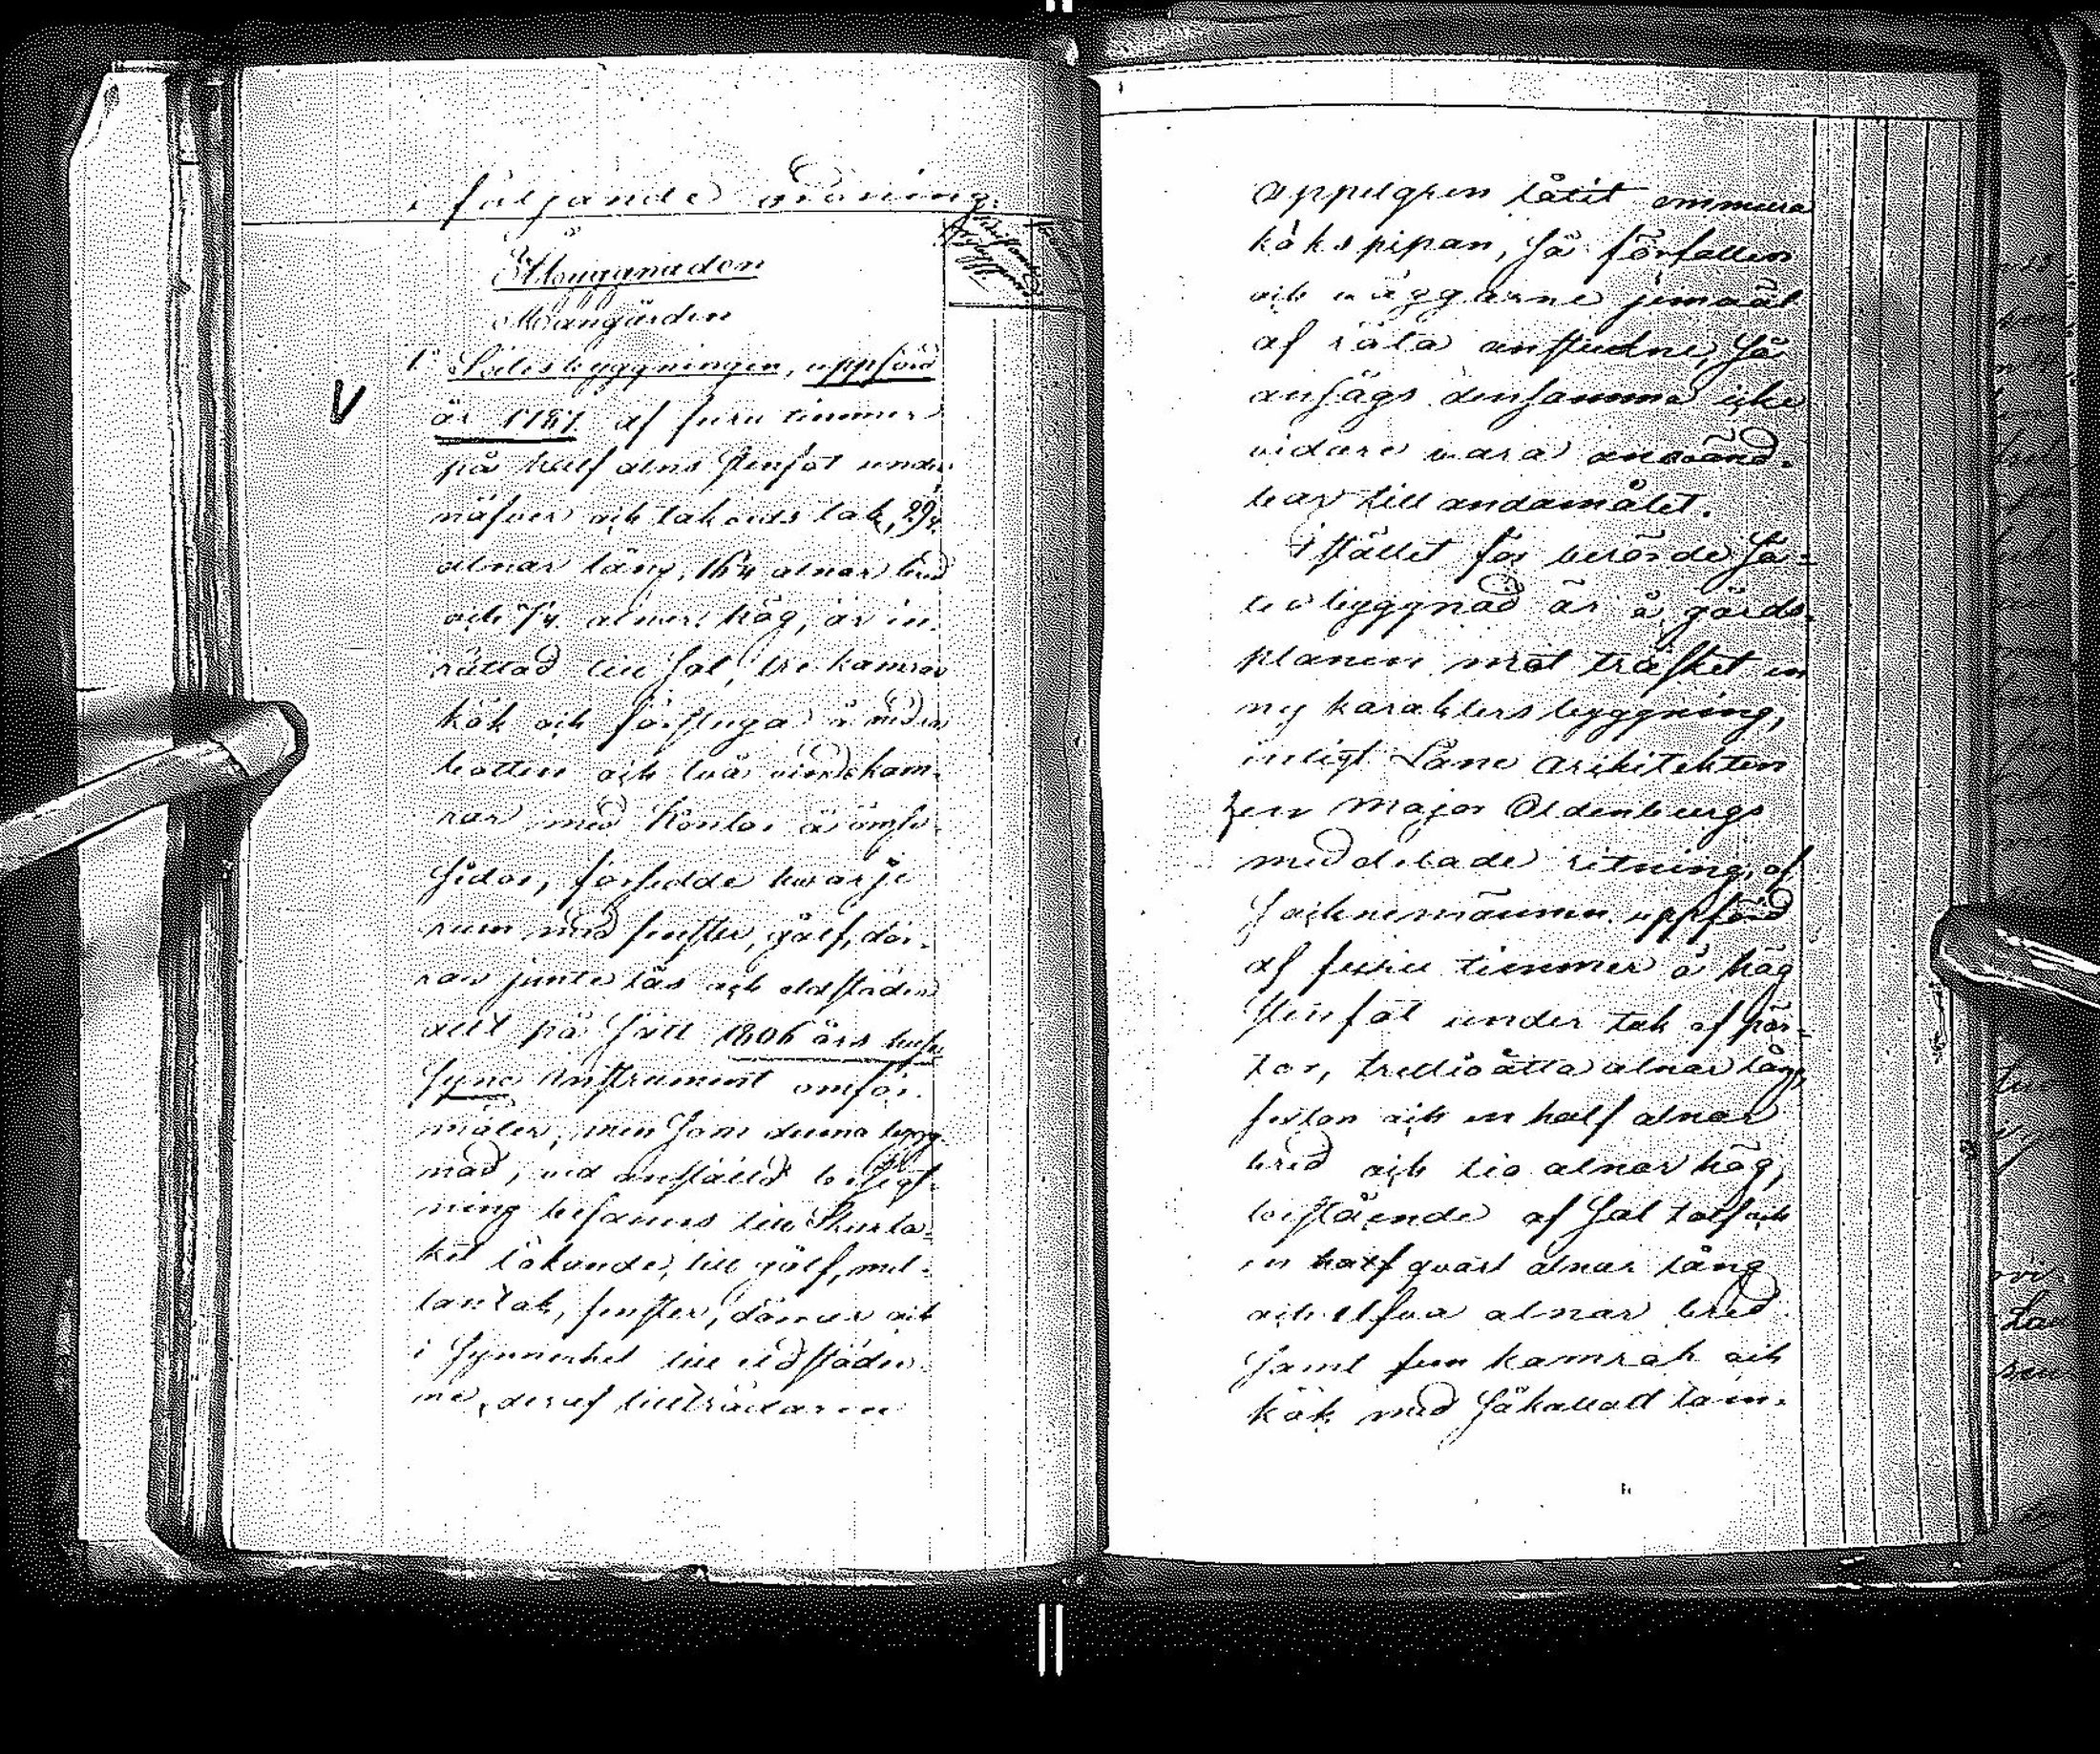 i följande ordning.
Åbyggnaden
Mangården
1:o Sätesbyggningen, uppförd
år 1787 af furu timmer
på half alns stenfot under
näfver och takveds tak, 29¼
alnar lång, 16¼ alnar bred
och 7¼ alnar hög, är in-
rättad till sal, tre kamrar
kök och förstuga å nedra
botten och två vindskam-
rar med Kontor å ömse
sidor, försedde hvarje
rum med fenster, gålf, dör-
rar jemte lås och eldstäder
allt på sätt 1806 års husa
syns Instrument omför-
mäler, men som denna bygg-
nad, vid anstäld besigt-
ning befanns till
ket läkande, till gålf, mel-
lantak, fenster, dörrar och
i synnerhet till eldstäder-
ne, deraf tillträdaren
Appelgren låtit ommura
kökspipan, så förfallen
och väggarne jemväl
af röta anstuckne, så
ansågs densamma icke
vidare vara använd-
bar till andamålet.
I stället för berörde Sä-
tesbyggnad är å gårds-
planen mot träsket en
ny karaktersbyggning,
enligt Läns Arkitekten
herr Major Oldenburgs
meddelade ritning, af
Socknemännen uppförd
af furu timmer å hög
stenfot under tak af pär-
tor, trettioåtta alnar lång,
sexton och en half alnar
bred och tio alnar hög,
bestående af Sal tolf och
en half qvart alnar lång
och elfva alnar bred
samt fem kamrar och
kök med såkallad tam-